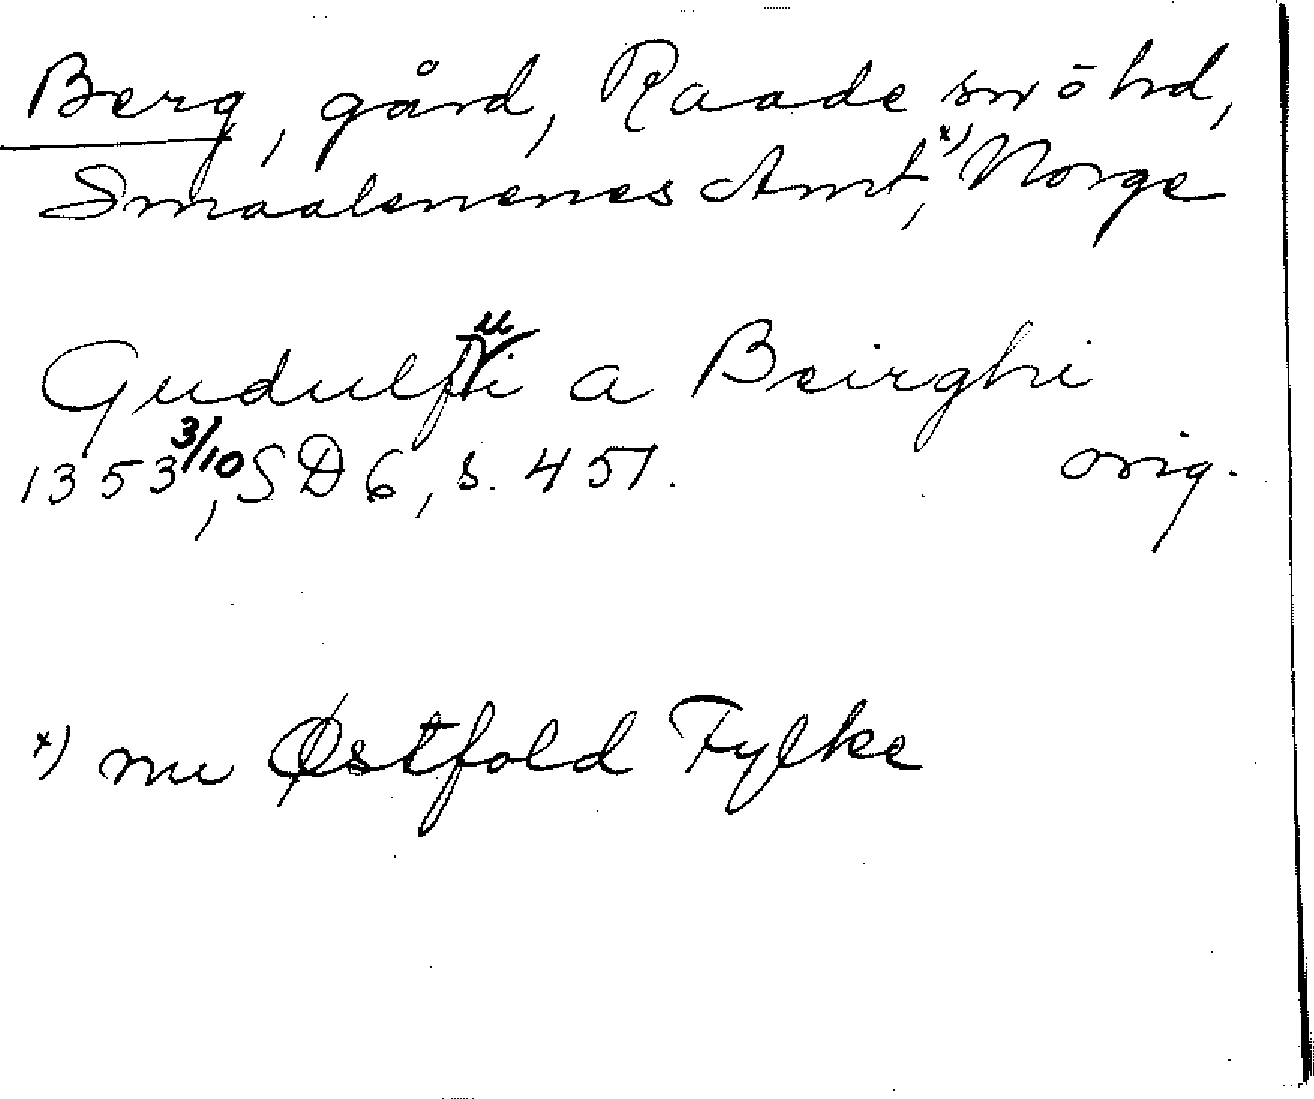 Berg, gård, Raade sn o hd,
Smaalenenes Amt,*) Norge
Gudulfui a Beirghi
1353 3/10, SD 6, s. 451. orig.
*) nu Østfold Fylke